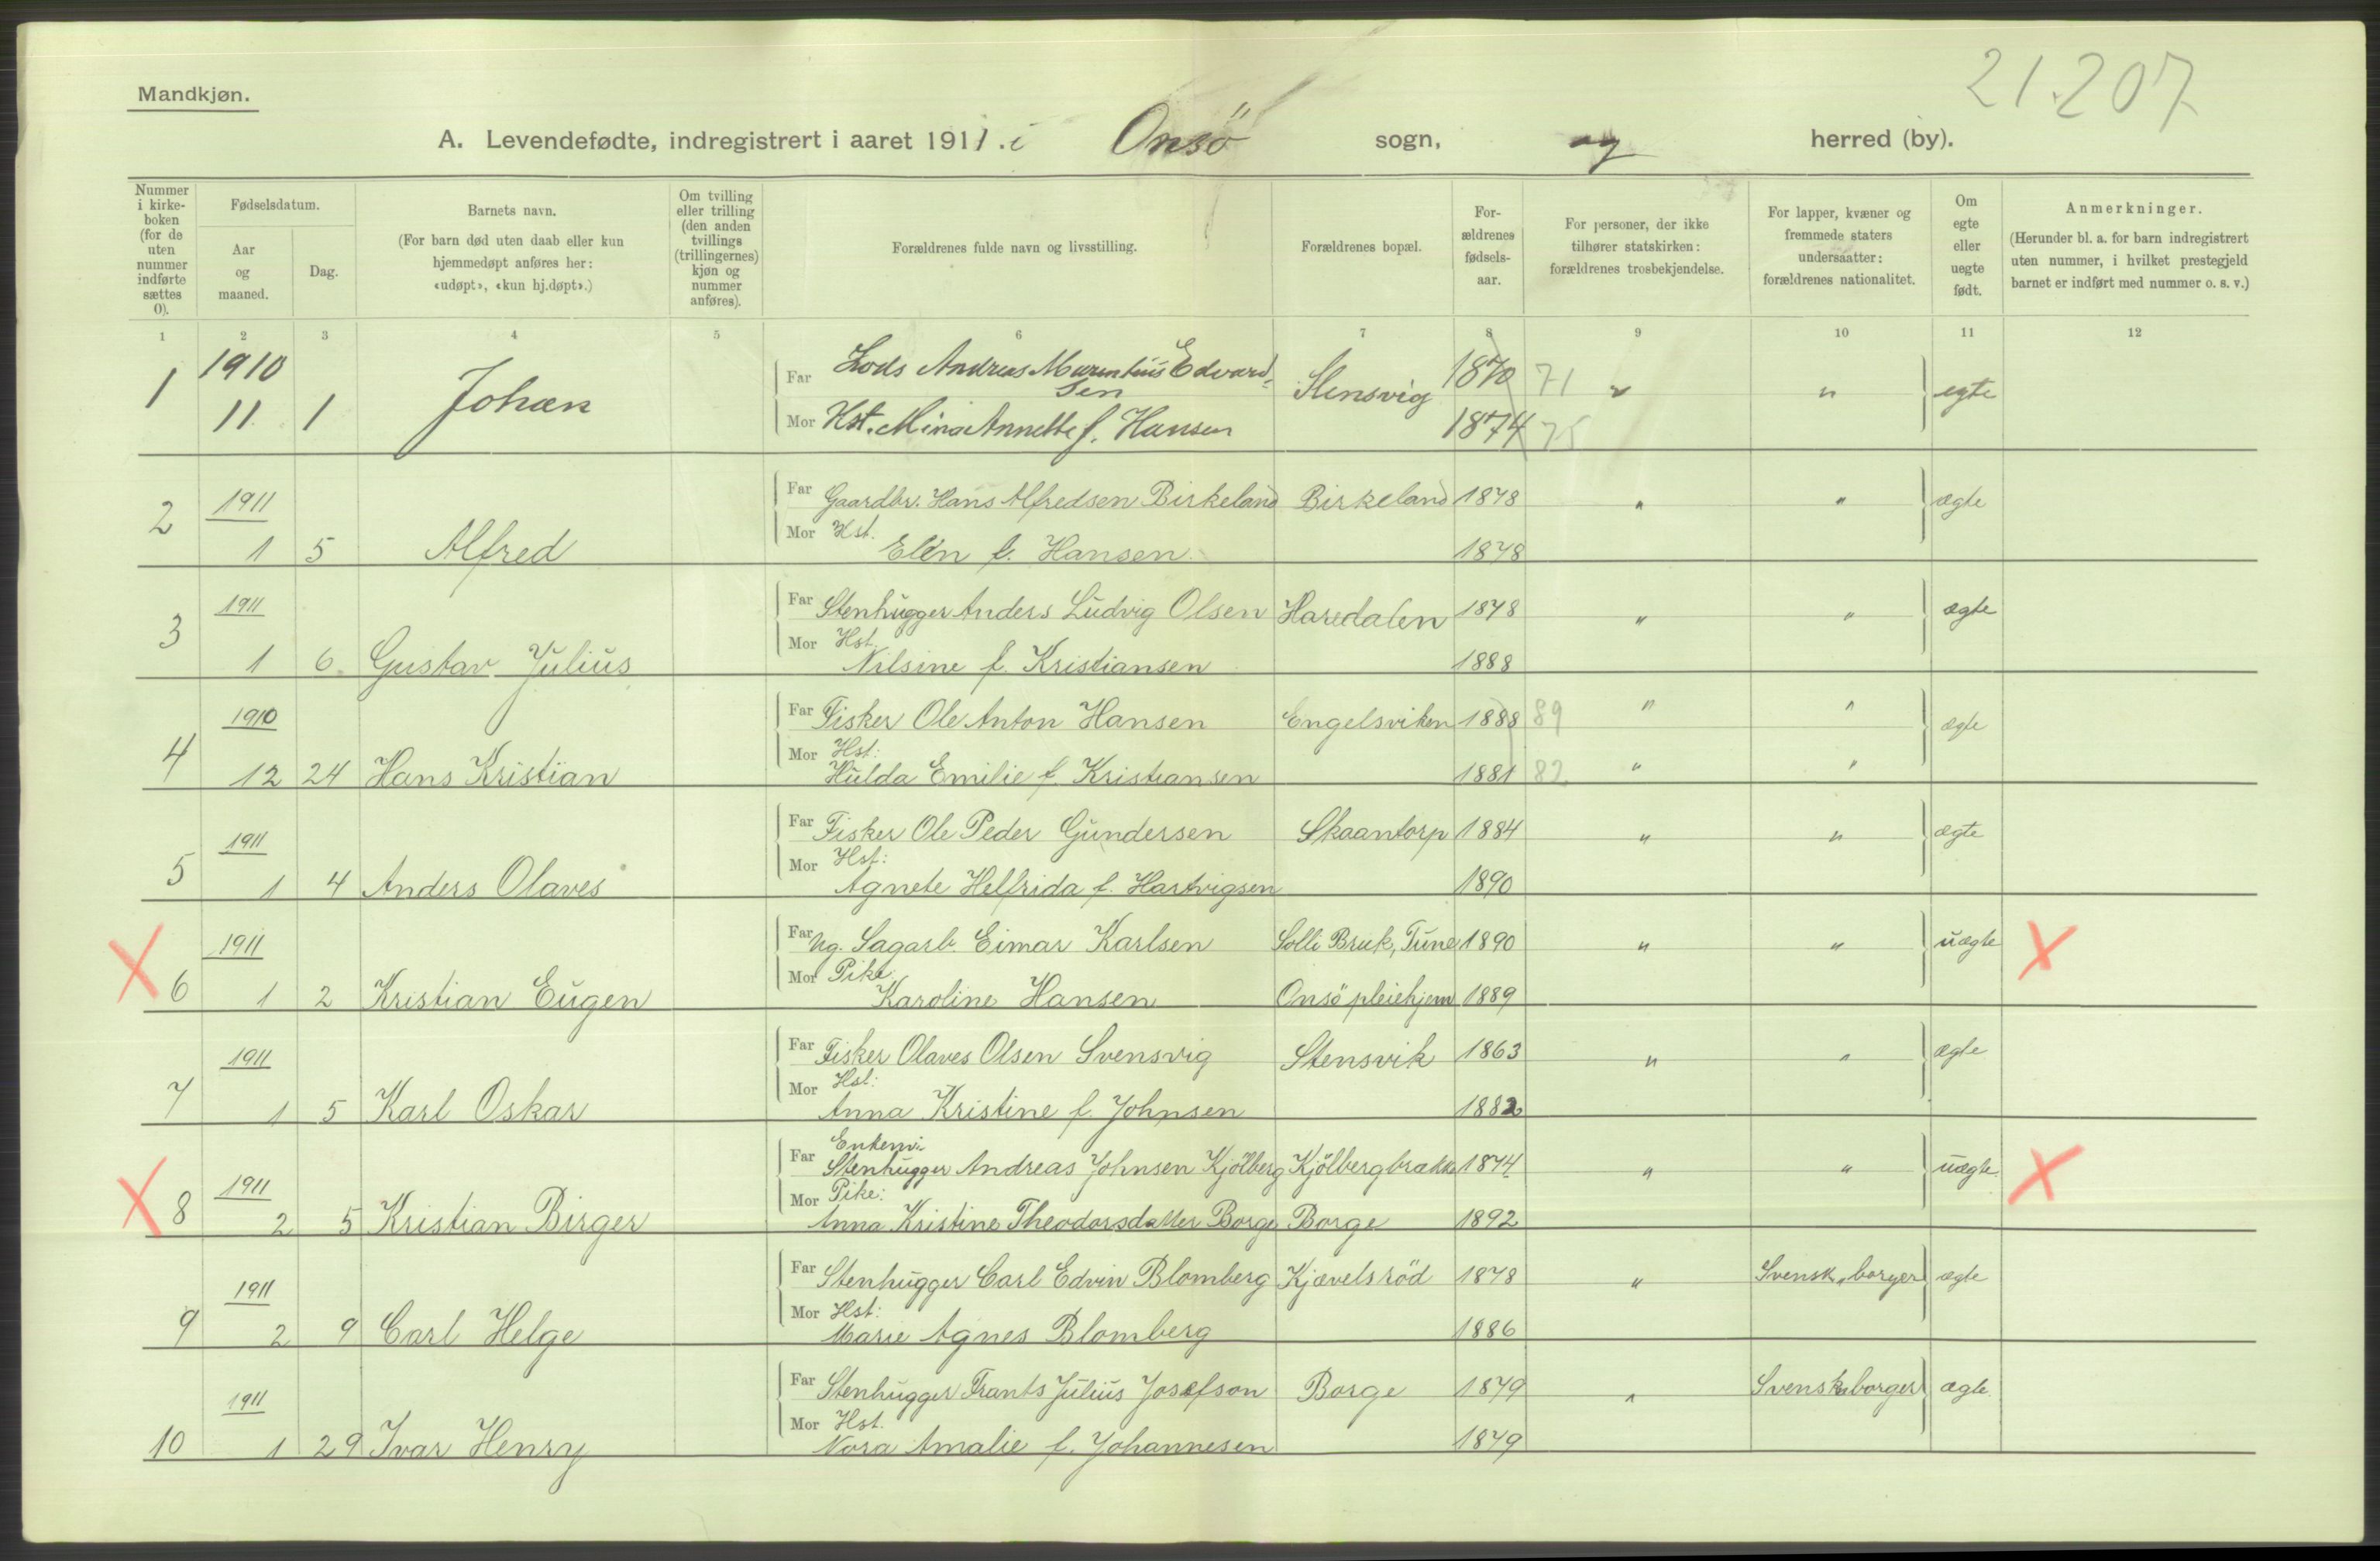 21.207
Mandkjøn.
A. Levendefødte, indregistrert i aaret 1911. i Onsö sogn, og herred (by).
Nummer i kirke-boken (for de uten nummer indførte sættes 0).
Fødselsdatum.
Aar og maaned.
Dag.
Barnets navn.
(For barn død uten daab eller kun hjemmedøpt anføres her: «udøpt», «kun hj.døpt».)
Om tvilling eller trilling (den anden tvillings (trillingernes) kjøn og nummer anføres).
Forældrenes fulde navn og livsstilling.
Forældrenes bopæl.
For-ældrenes fødsels-aar.
For personer, der ikke tilhører statskirken: forældrenes trosbekjendelse.
For lapper, kvæner og fremmede staters undersaatter: forældrenes nationalitet.
Om egte eller uegte født.
Anmerkninger.
(Herunder bl. a. for barn indregistrert uten nummer, i hvilket prestegjeld barnet er indført med nummer o. s. v.)
1 2 3 4 5 6 7 8 9 10 11 12
1 1910 11 1 Johan Far Lods Andreas Marentius Edvard-sen Stensvig 1870 71 " " egte
Mor Hst. Mina Annette f. Hansen 1874 75
2 1911 1 5 Alfred Far Gaardbr. Hans Alfredsen Birkeland Birkeland 1878 " " ægte
Mor Hst. Elen f. Hansen 1878
3 1911 1 6 Gustav Julius Far Stenhugger Anders Ludvig Olsen Haredalen 1878 " " ægte
Mor Hst. Nilsine f. Kristiansen 1888
4 1910 12 24 Hans Kristian Far Fisker Ole Anton Hansen Engelsviken 1888 89 " " ægte
Mor Hst: Hulda Emilie f. Kristiansen 1881 82 " "
5 1911 1 4 Anders Olaves Far Fisker Ole Peder Gundersen Skaantorp 1884 " " ægte
Mor Hst: Agnete Helfrida f. Hartvigsen 1890
6 1911 1 2 Kristian Eugen Far Ug. Sagarb. Eimar Karlsen Solli Bruk, Tune 1890 " " uægte
Mor Pike: Karoline Hansen Onsö pleiehjem 1889
7 1911 1 5 Karl Oskar Far Fisker Olaves Olsen Svensvig Stensvik 1863 " " ægte
Mor Hst: Anna Kristine f. Johnsen 1882
8 1911 2 5 Kristian Birger Far Enkem: Stenhugger Andreas Johnsen Kjölberg Kjölbergbrakke 1874 " " uægte
Mor Pike: Anna Kristine Theodorsdatter Borge Borge 1892
9 1911 2 9 Carl Helge Far Stenhugger Carl Edvin Blomberg Kjævelsröd 1878 " Svensk borger ægte
Mor Hst: Marie Agnes Blomberg 1886
10 1911 1 29 Ivar Henry Far Stenhugger Frants Julius Josefson Borge 1879 " Svensk borger ægte
Mor Hst. Nora Amalie f. Johannesen 1879